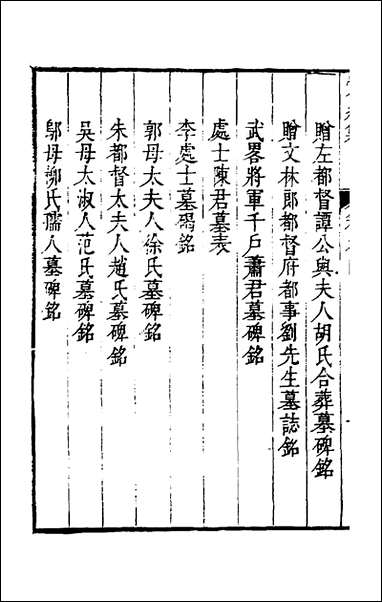 贈左都督譚公與夫人胡氏合葬墓碑銘
贈文林郎都督府都事劉先生墓誌銘
武畧將軍千戶蕭君墓碑銘
處士陳君墓表
李處士墓碣銘
郭母太夫人徐氏墓碑銘
朱都督太夫人趙氏墓碑銘
吳母太淑人范氏墓碑銘
鄔母柳氏孺人墓碑銘